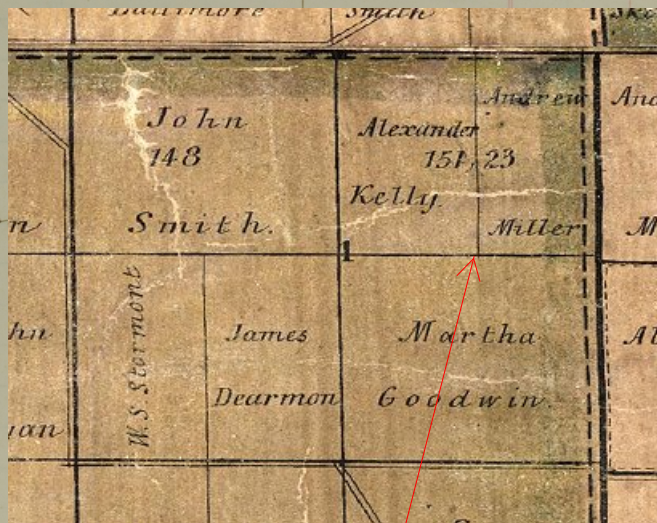 Baltimore
Smith
John
148
Smith.
Alexander
151,23
Kelly
Andrew
Miller
And
M
1
rn
W.S Stormont
James
Dearmon
Martha
Goodwin.
hn
yan
Al